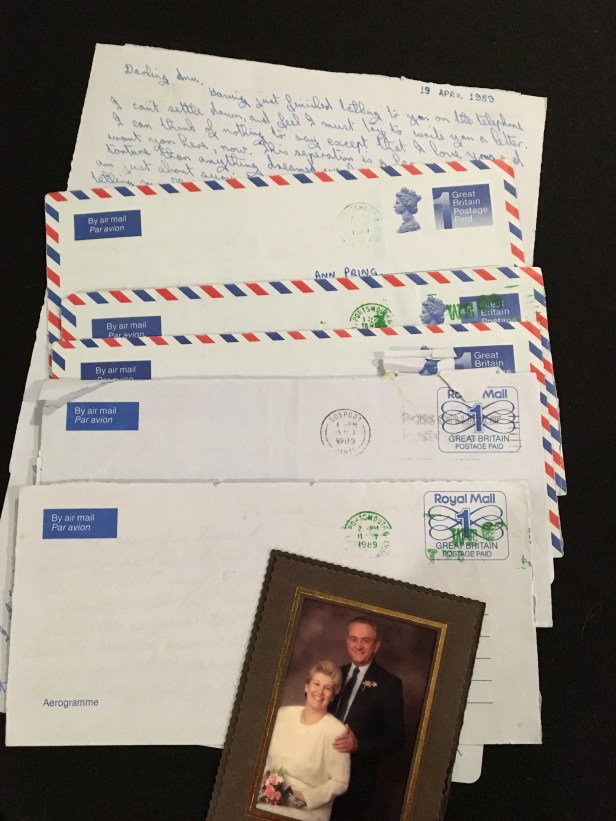 19 APRIL 1989
Darling Ann,
Having just finished talking to you on the telephone
I can't settle down, and feel I must try to write you a letter.
I can think of nothing to say except that I love you and
want you here, now. This seperation is a
torture than anything
am just about
By air mail
Par avion
1989
1 Great
Britain
Postage
Paid
ANN PRING.
By air mail
PORTSMOUTH
Great
Britain
Postage
By air mail
Great
Britain
By air mail
Par avion
GOSPORT
1989
Royal Mail
1
GREAT BRITAIN
POSTAGE PAID
By air mail
Par avion
PORTSMOUTH &
1989
Royal Mail
1
GREAT BRITAIN
POSTAGE PAID
Aerogramme